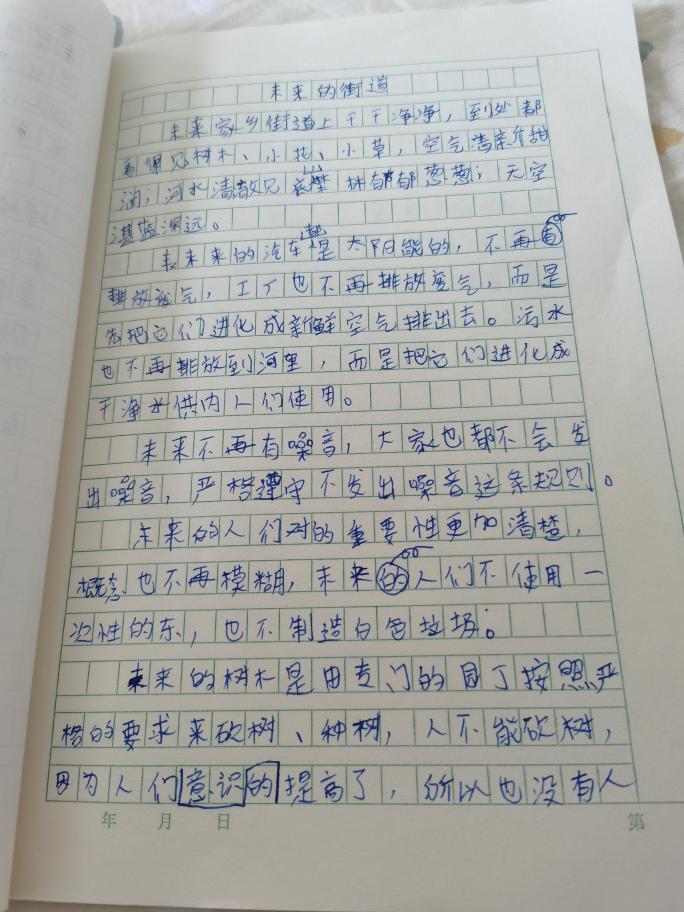 未来的街道
未来家乡街道上干干净净，到处都
看得见树木、小花、小草，空气清亲介甜
润；河水清散见底 林郁郁葱葱；天空
湛蓝深远。
未来的汽车都是太阳能的，不再
排放废气，工厂也不再排放废气，而是
先把它们进化成新鲜空气排出去。污水
也不再排放到河里，而是把它们进化成
干净水供内人们使用。
未来不再有噪音，大家也都不会发
出噪音，严格遵守不发出噪音这条规则。
未来的人们对的重要性更加清楚，
概念也不再模糊，未来的人们不使用一
次性的东，也不制造白色垃圾。
未来的树木是由专门的园丁按照严
格的要求来砍树、种树，人不能砍树，
因为人们意识的提高了，所以也没有人
年 月 日 第